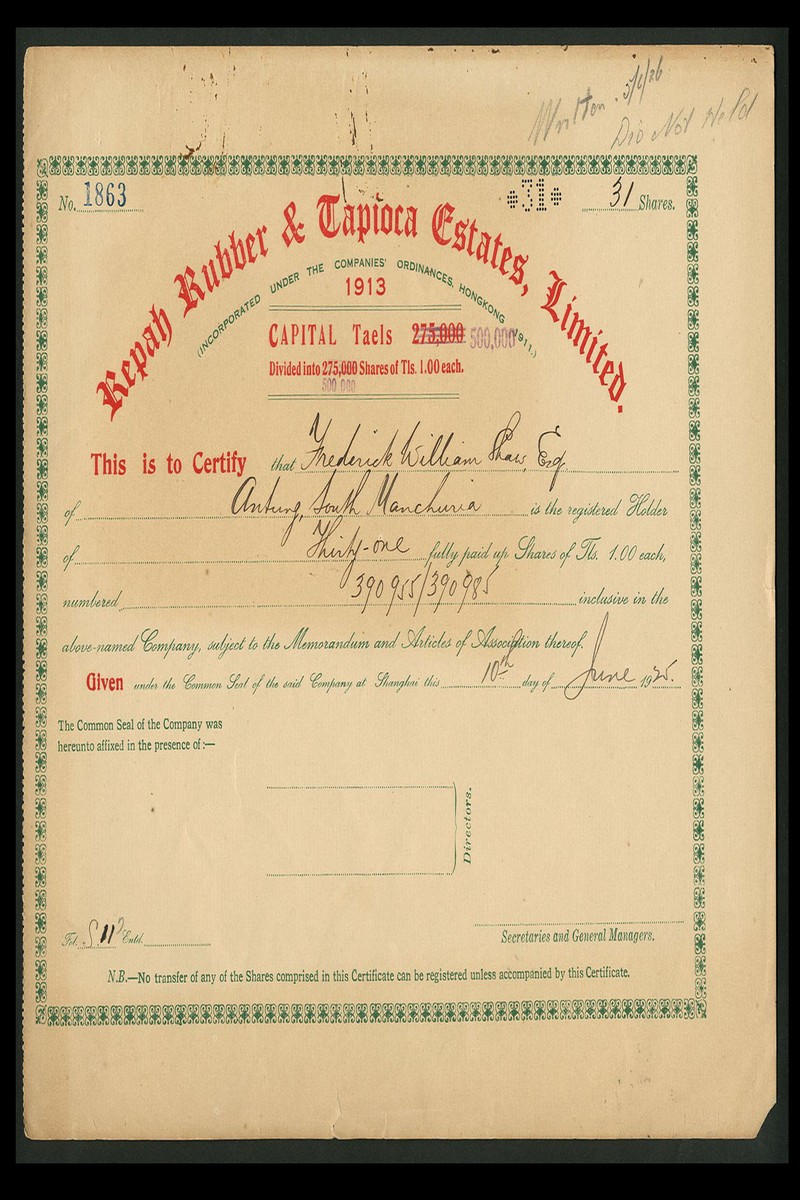 Written . 5/6/26
Div Not Held
No. 1863
*31*
31 Shares.
Repah Rubber & Tapioca Estates, Limited.
(INCORPORATED UNDER THE COMPANIES' ORDINANCES, HONGKONG 1911.)
1913
CAPITAL Taels 275,000 500,000
Divided into 275,000 Shares of Tls. 1.00 each.
500 000
This is to Certify that Frederick William Shaw, Esq
of Antung, South Manchuria is the registered Holder
of Thirty-one fully paid up Shares of Tls. 1.00 each,
numbered 390955/390985 inclusive in the
above-named Company, subject to the Memorandum and Articles of Association thereof.
Given under the Common Seal of the said Company at Shanghai this 10th day of June 1925.
The Common Seal of the Company was
hereunto affixed in the presence of :—
Directors.
Fol. S. 11 Entd.
Secretaries and General Managers.
N.B.—No transfer of any of the Shares comprised in this Certificate can be registered unless accompanied by this Certificate.